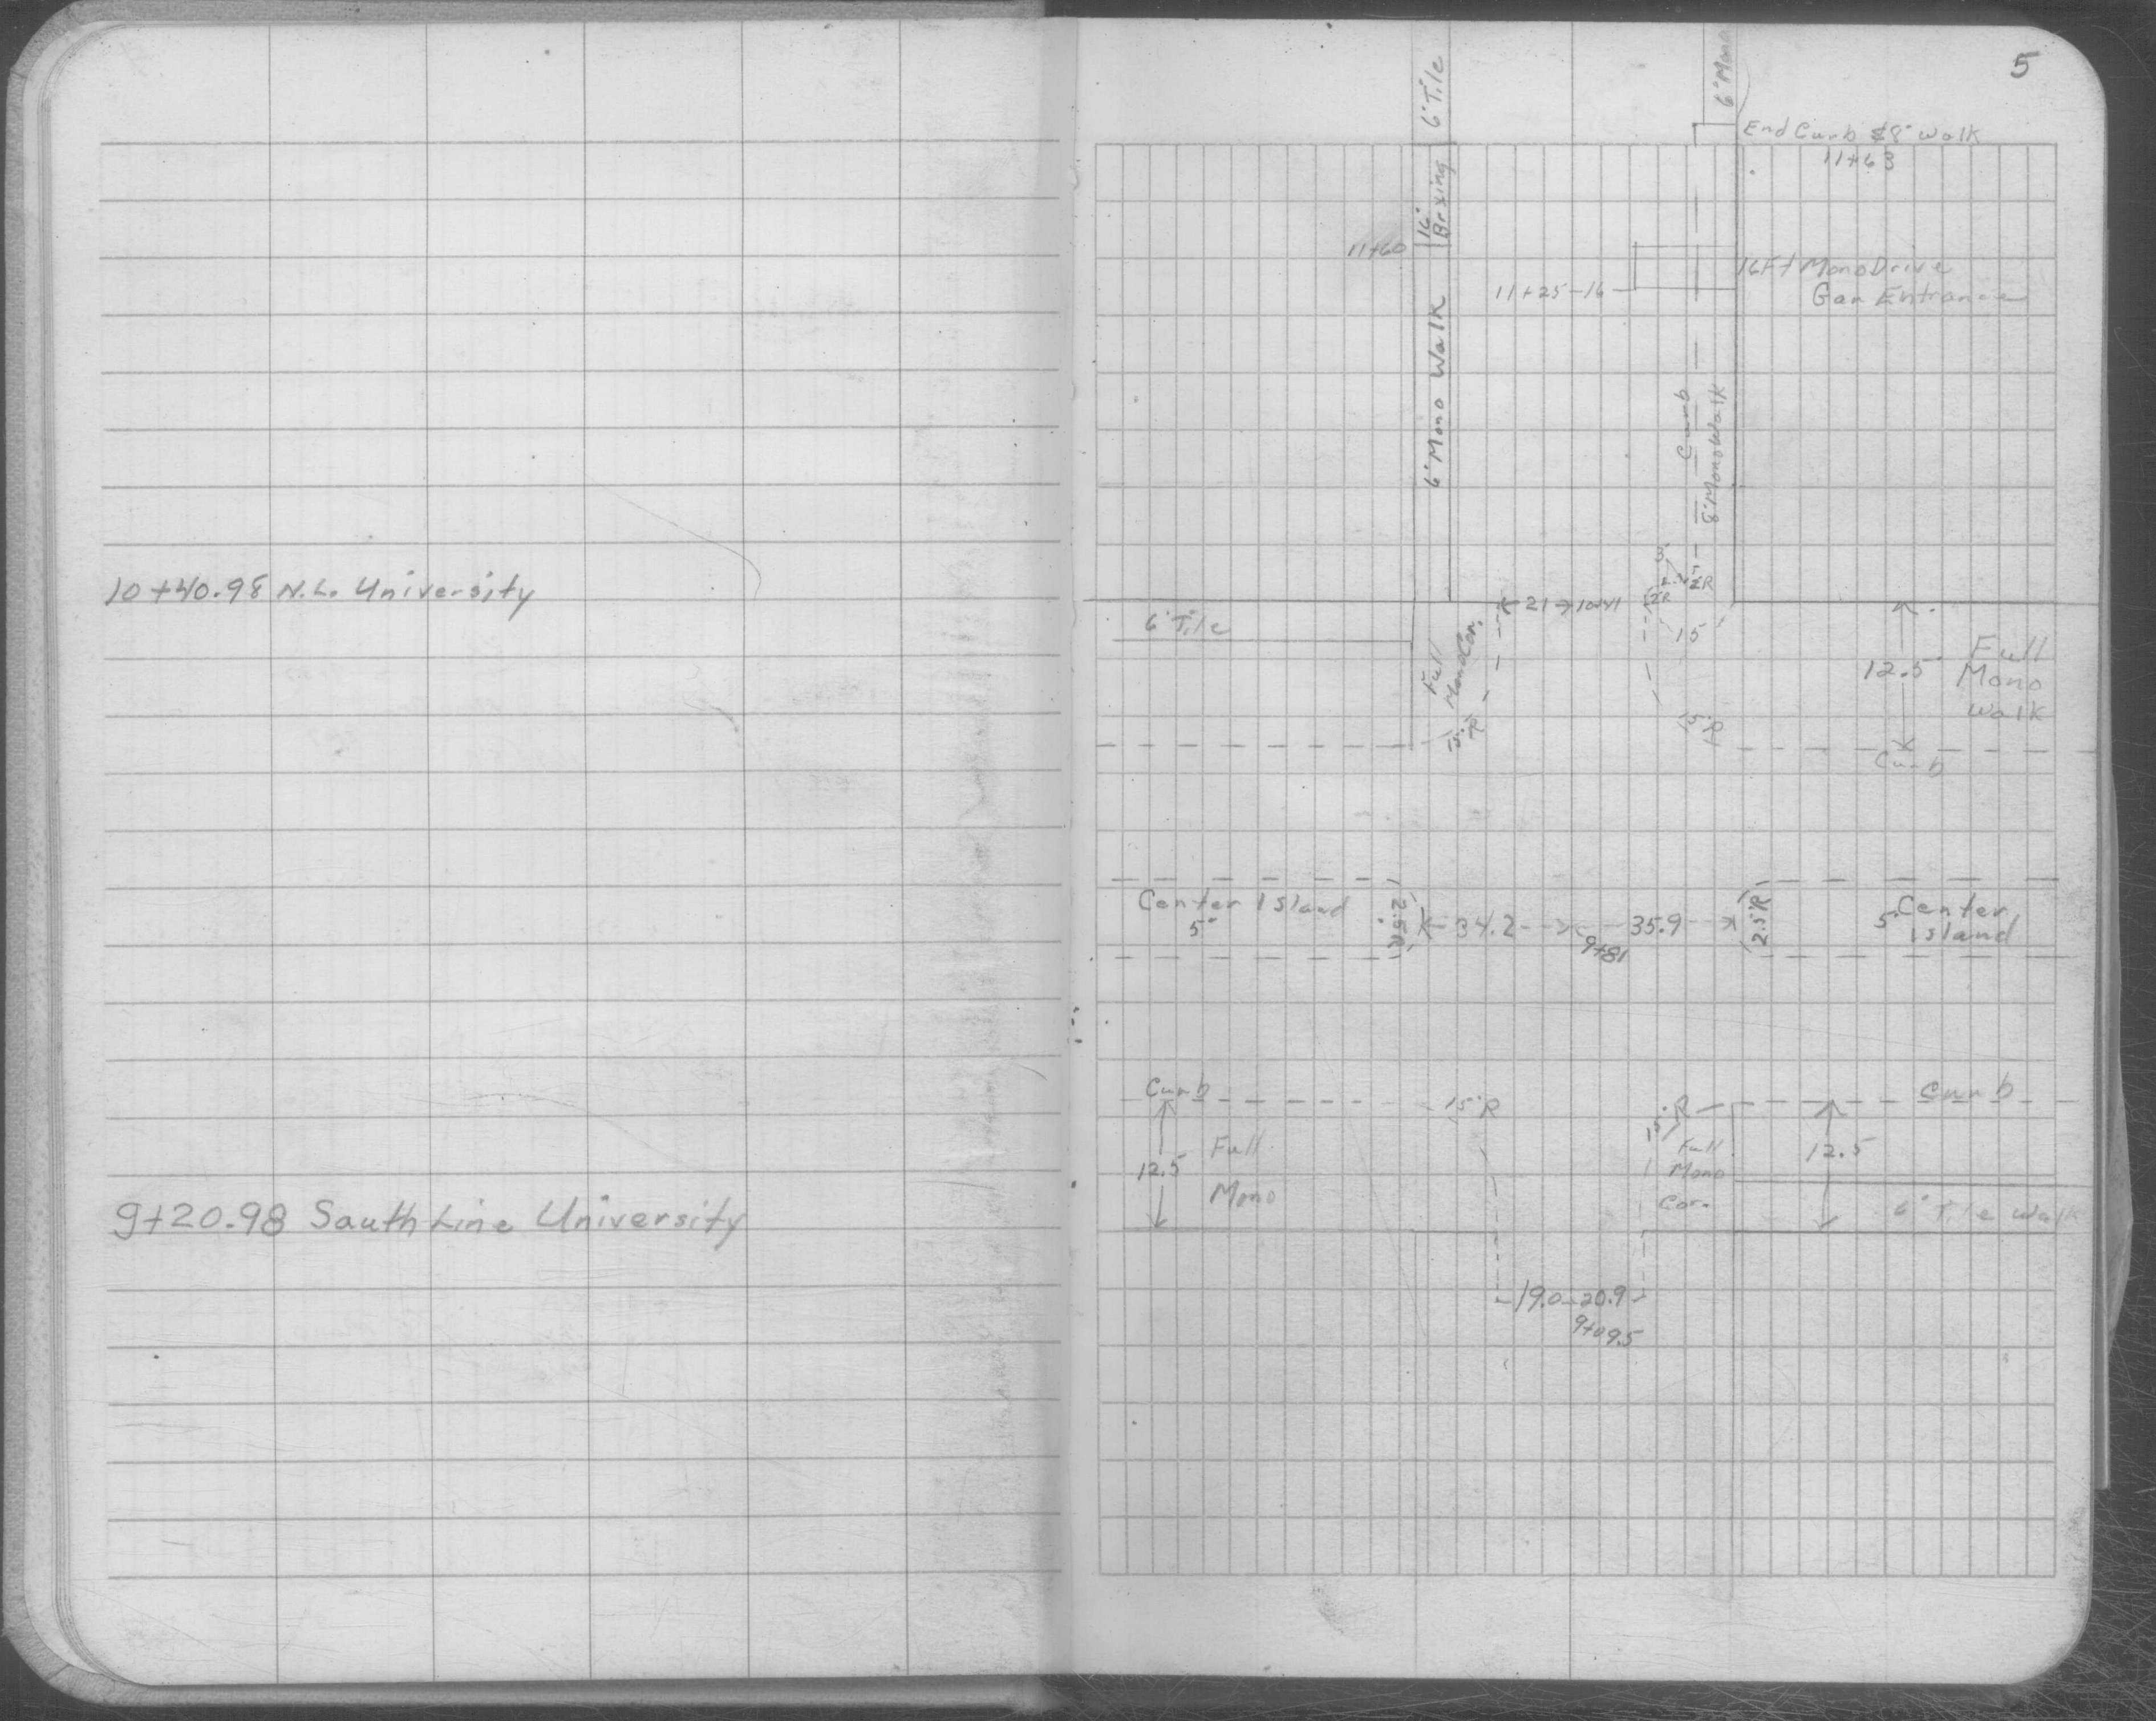 10+40.98 N.L. University
9+20.98 South Line University
5
6' Tile
6' Mono
End Curb & 8' walk
11+63
16'
Brxing
11+60
16 Ft Mono Drive
Gar Entrance
11+25-16
6' Mono Walk
Curb
8' Mono Walk
3'
2R
2R
21
10+41
15
6' Tile
Full
Mono Cor.
15'R
15'R
12.5
Full
Mono
Walk
Curb
Center Island
5'
2.5'R
34.2
35.9
9+81
2.5'R
5' Center
Island
Curb
15'R
15'R
Curb
12.5
Full
Mono
Full
Mono
Cor.
12.5
6' Tile Walk
19.0-20.9
9+09.5